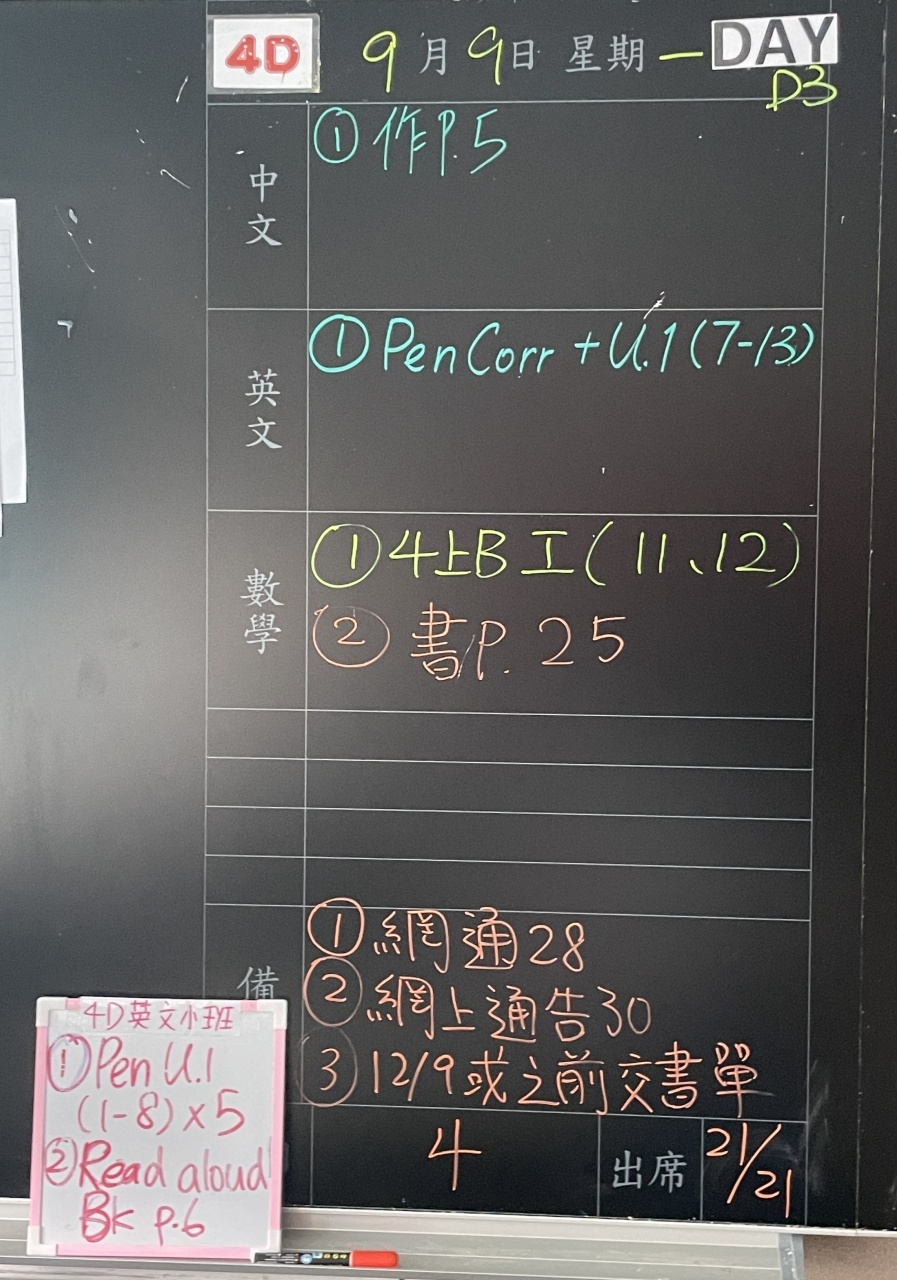 4D 9月9日 星期一 DAY
D3
中文 ①作P.5
英文 ①Pen Corr + U.1 (7-13)
數學 ①4上B工(11、12)
②書P.25
備
①網通28
②網上通告30
③12/9或之前交書單
4 出席 21/21
4D英文小班
①Pen U.1
(1-8)×5
②Read aloud
Bk p.6